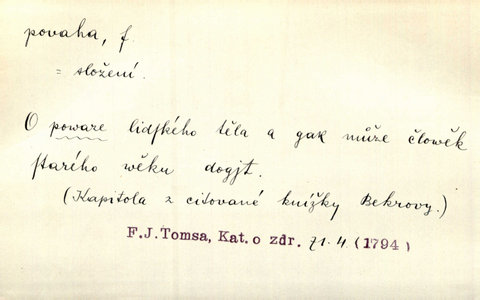 povaha, f.
= složení.
O poware lidſkého těla a gak může člověk
ſtarého wěku dogjt.
(Kapitola z citované knížky Bekrovy.)
F.J.Tomsa, Kat. o zdr. 71.4. (1794)